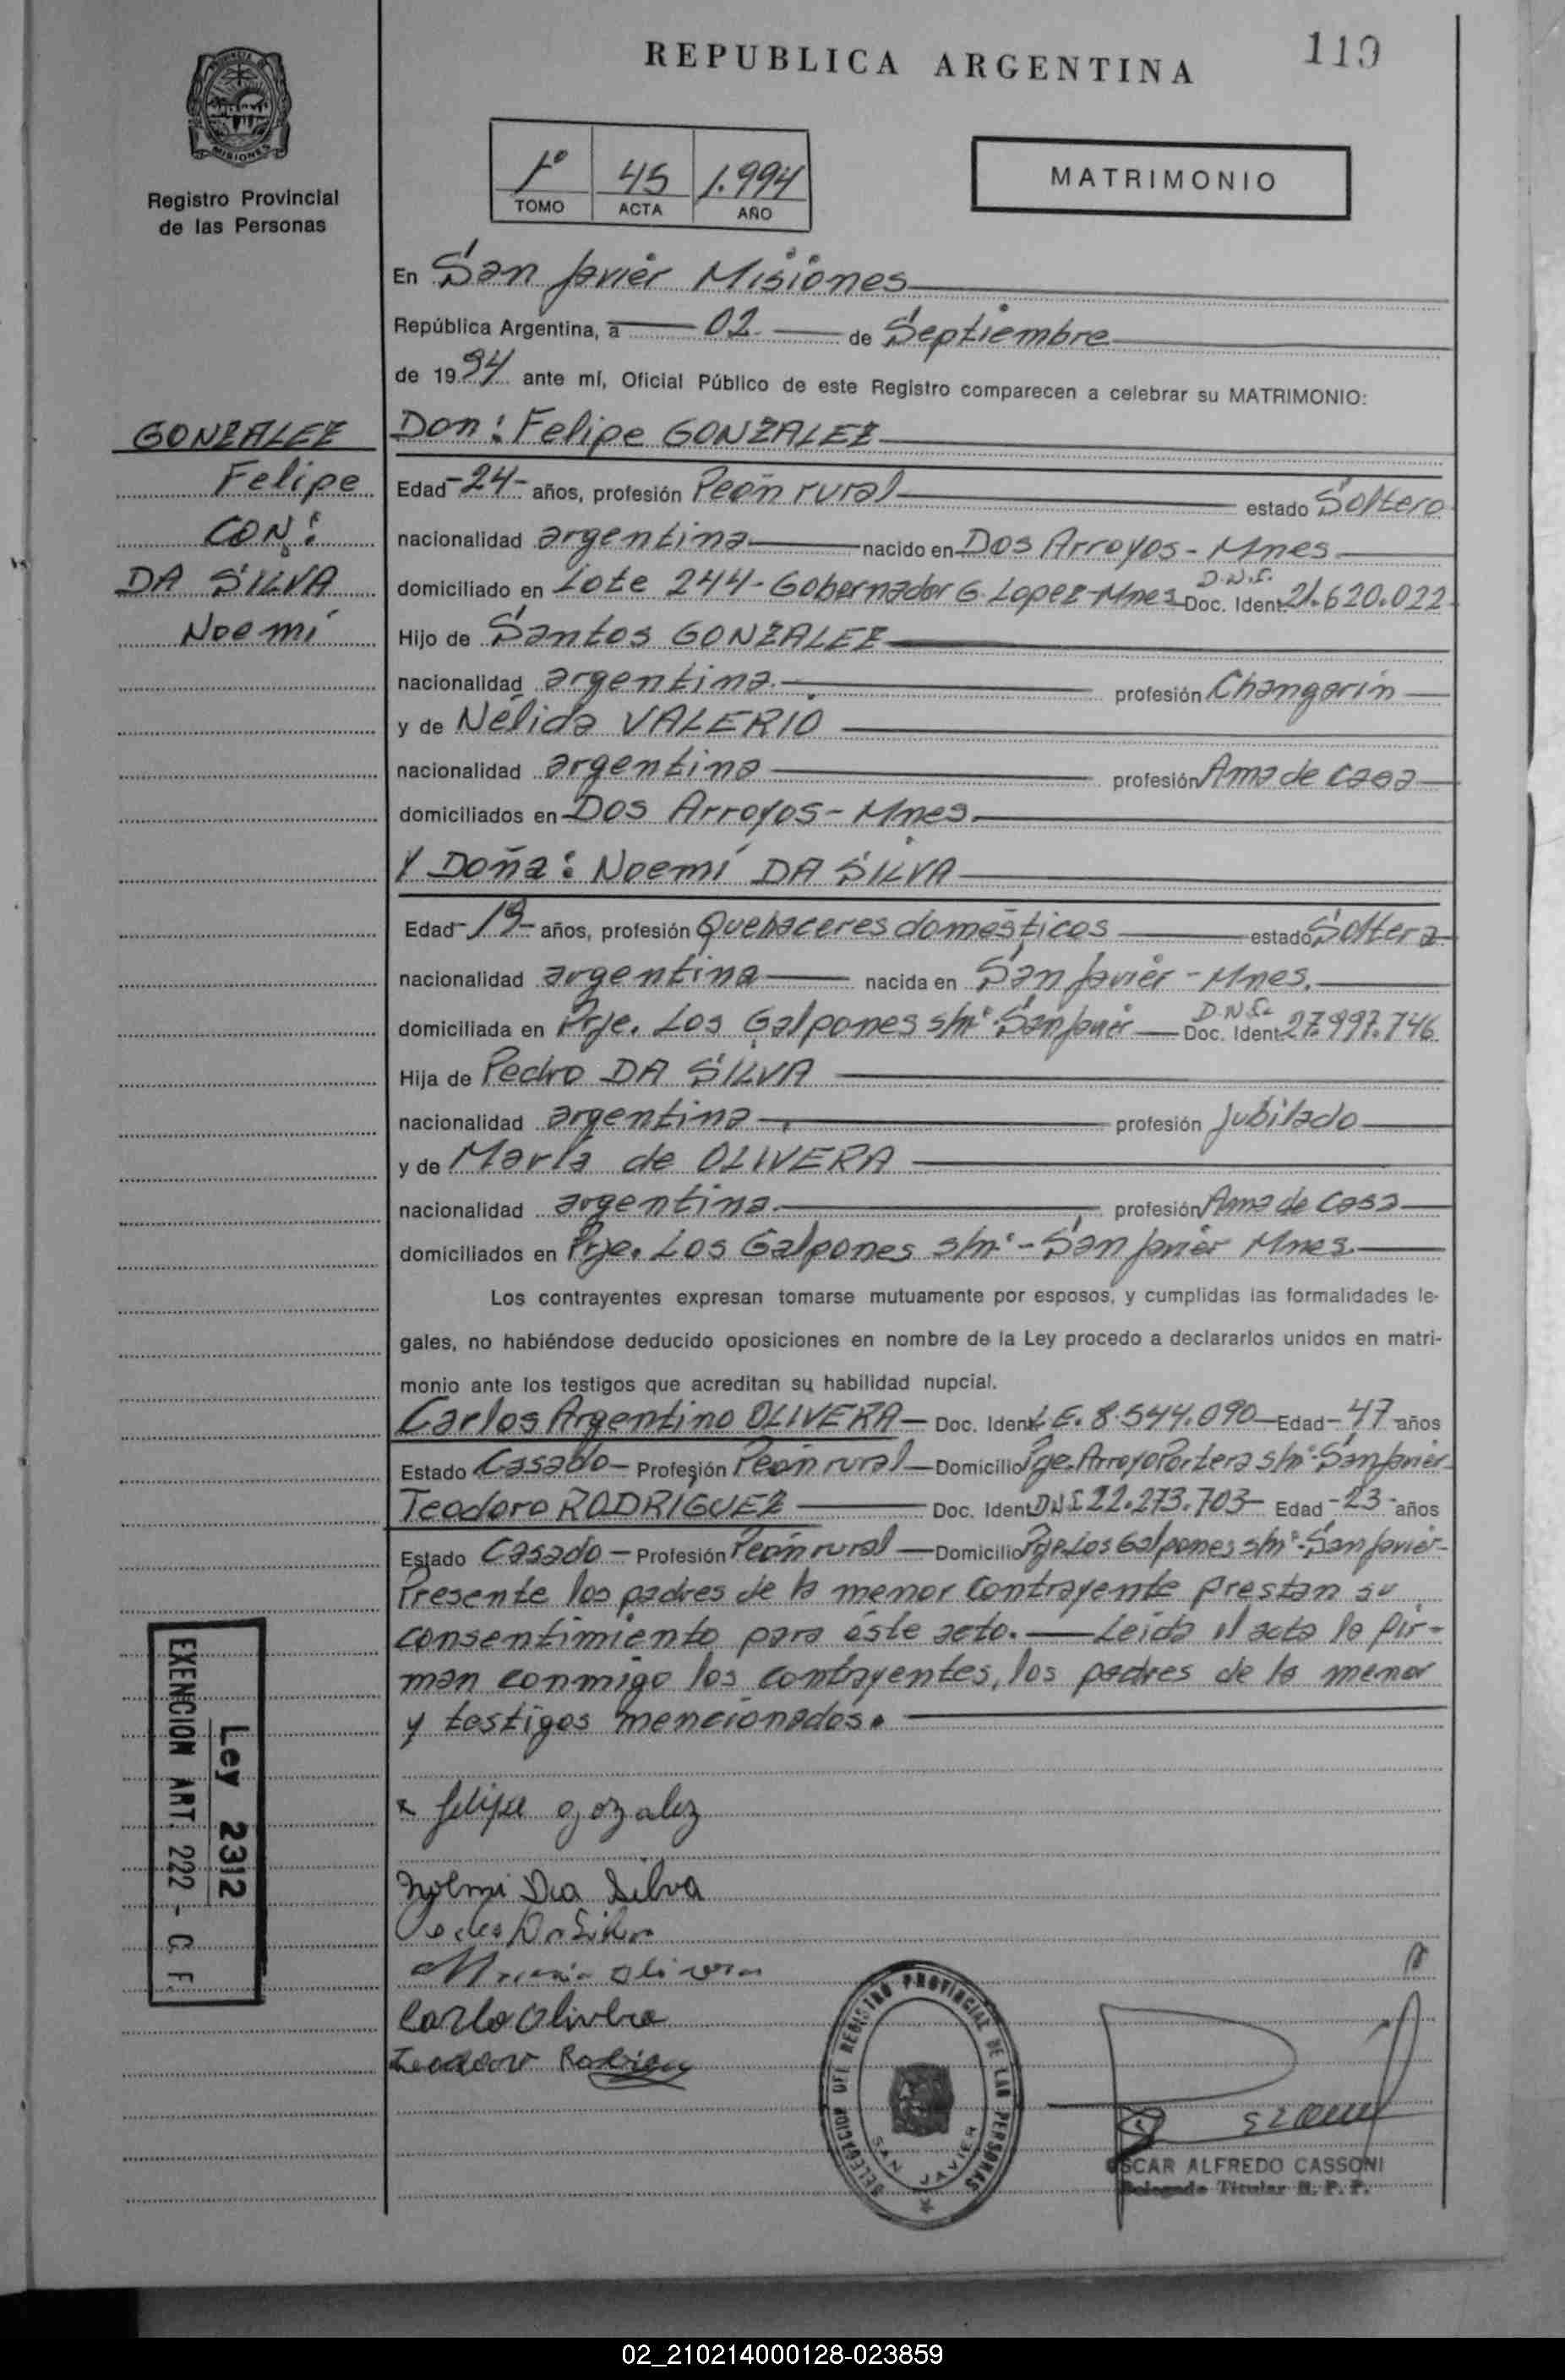 REPUBLICA ARGENTINA
119
MISIONES
Registro Provincial
de las Personas
1º 45 1.994
TOMO ACTA AÑO
MATRIMONIO
En San Javier Misiones
República Argentina, a 02 de Septiembre
de 1994 ante mí, Oficial Público de este Registro comparecen a celebrar su MATRIMONIO:
GONZALEZ
Felipe
CON:
DA SILVA
Noemí
Don: Felipe GONZALEZ
Edad -24- años, profesión Peón rural estado Soltero
nacionalidad argentina nacido en Dos Arroyos - Mnes
domiciliado en Lote 244- Gobernador G. Lopez-Mnes D.N.I. Doc. Ident. 21.620.022
Hijo de Santos GONZALEZ
nacionalidad argentina. profesión Changarín
y de Nélida VALERIO
nacionalidad argentina profesión Ama de casa
domiciliados en Dos Arroyos - Mnes.
Y Doña: Noemí DA SILVA
Edad -19- años, profesión Quehaceres domésticos estado Soltera
nacionalidad argentina nacida en San Javier - Mnes.
domiciliada en Prje. Los Galpones s/nº San Javier D.N.I. Doc. Ident. 27.997.746
Hija de Pedro DA SILVA
nacionalidad argentina profesión Jubilado
y de María de OLIVERA
nacionalidad argentina. profesión Ama de casa
domiciliados en Prje. Los Galpones s/nº - San Javier Mnes.
Los contrayentes expresan tomarse mutuamente por esposos, y cumplidas las formalidades le-
gales, no habiéndose deducido oposiciones en nombre de la Ley procedo a declararlos unidos en matri-
monio ante los testigos que acreditan su habilidad nupcial.
Carlos Argentino OLIVERA - Doc. Ident. L.E. 8.544.090 - Edad - 47 años
Estado Casado - Profesión Peón rural - Domicilio Pje. Arroyo Portera s/nº San Javier
Teodoro RODRIGUEZ Doc. Ident. DNI 22.273.703 - Edad - 23 - años
Estado Casado - Profesión Peón rural - Domicilio Pje Los Galpones s/nº - San Javier-
Presente los padres de la menor contrayente prestan su
consentimiento para éste acto. - Leída el acta la fir-
man conmigo los contrayentes, los padres de la menor
y testigos mencionados.
Ley 2312
EXENCION ART. 222 - C. F.
x felipe gozalez
Noemi Da Silva
Pedro Da Silva
Maria Olivera
Carlo Olivera
Teodoro Rodriguez
DELEGACION DEL REGISTRO PROVINCIAL DE LAS PERSONAS
SAN JAVIER
OSCAR ALFREDO CASSONI
Delegado Titular R. P. P.
02_210214000128-023859